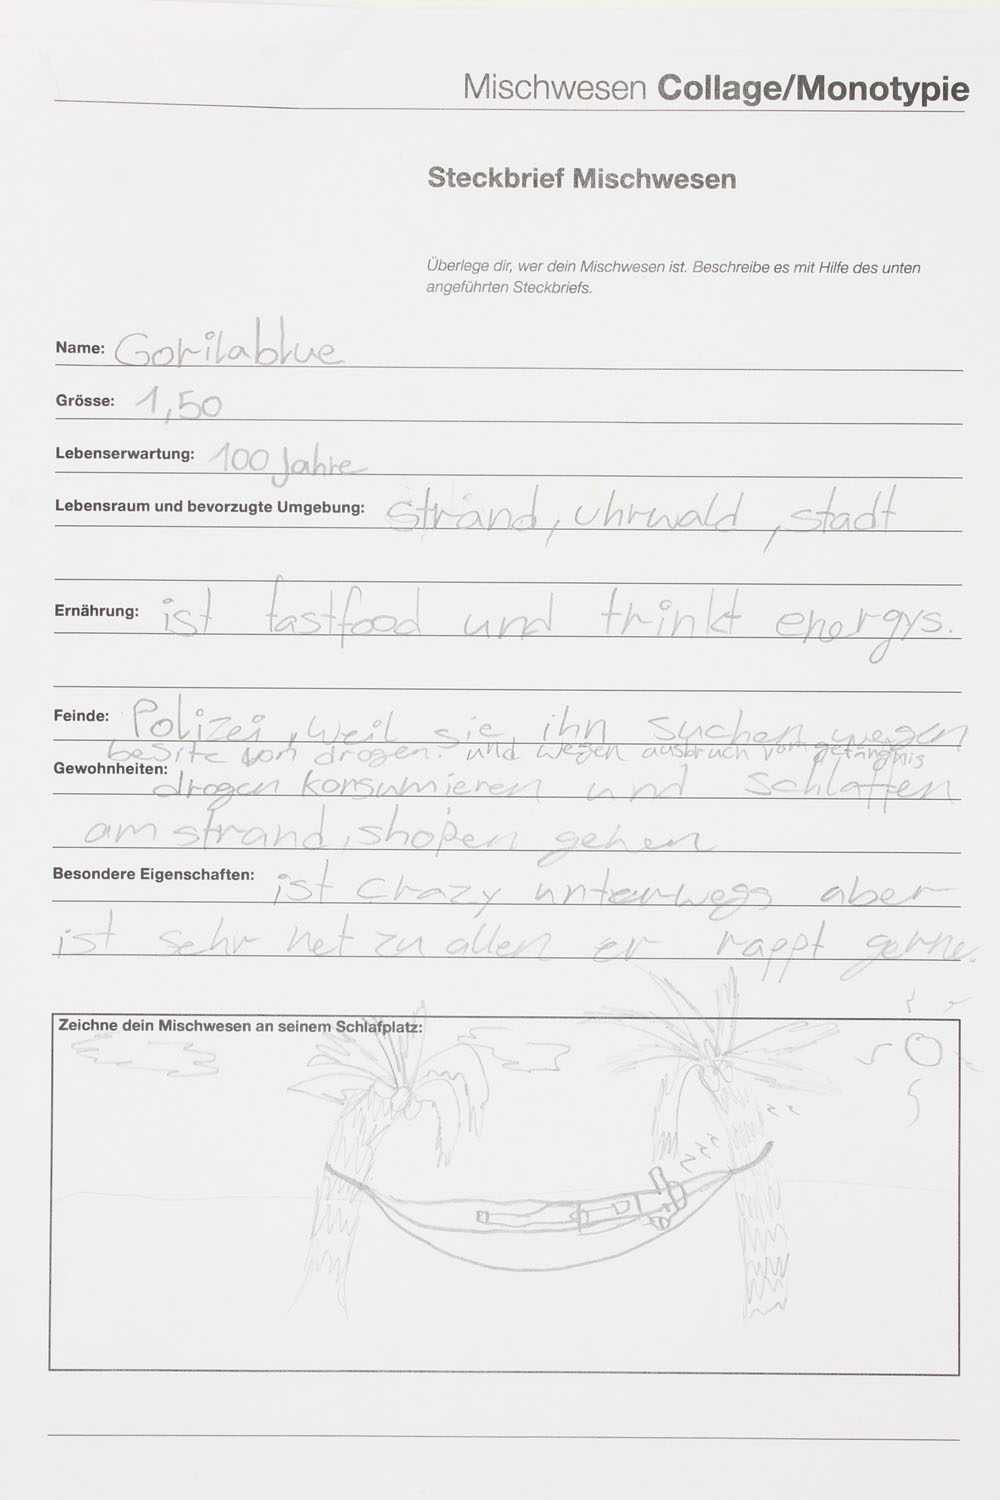 Mischwesen Collage/Monotypie
Steckbrief Mischwesen
Überlege dir, wer dein Mischwesen ist. Beschreibe es mit Hilfe des unten
angeführten Steckbriefs.
Name: Gorilablue
Grösse: 1,50
Lebenserwartung: 100 Jahre
Lebensraum und bevorzugte Umgebung: strand, uhrwald, stadt
Ernährung: ist fastfood und trinkt energys.
Feinde: Polizei, weil sie ihn suchen wegen
besitz von drogen. und wegen ausbruch vom gefängnis
Gewohnheiten: drogen konsumieren und schlaffen
am strand, shopen gehen
Besondere Eigenschaften: ist crazy unterwegs aber
ist sehr net zu allen er rappt gerne.
Zeichne dein Mischwesen an seinem Schlafplatz: